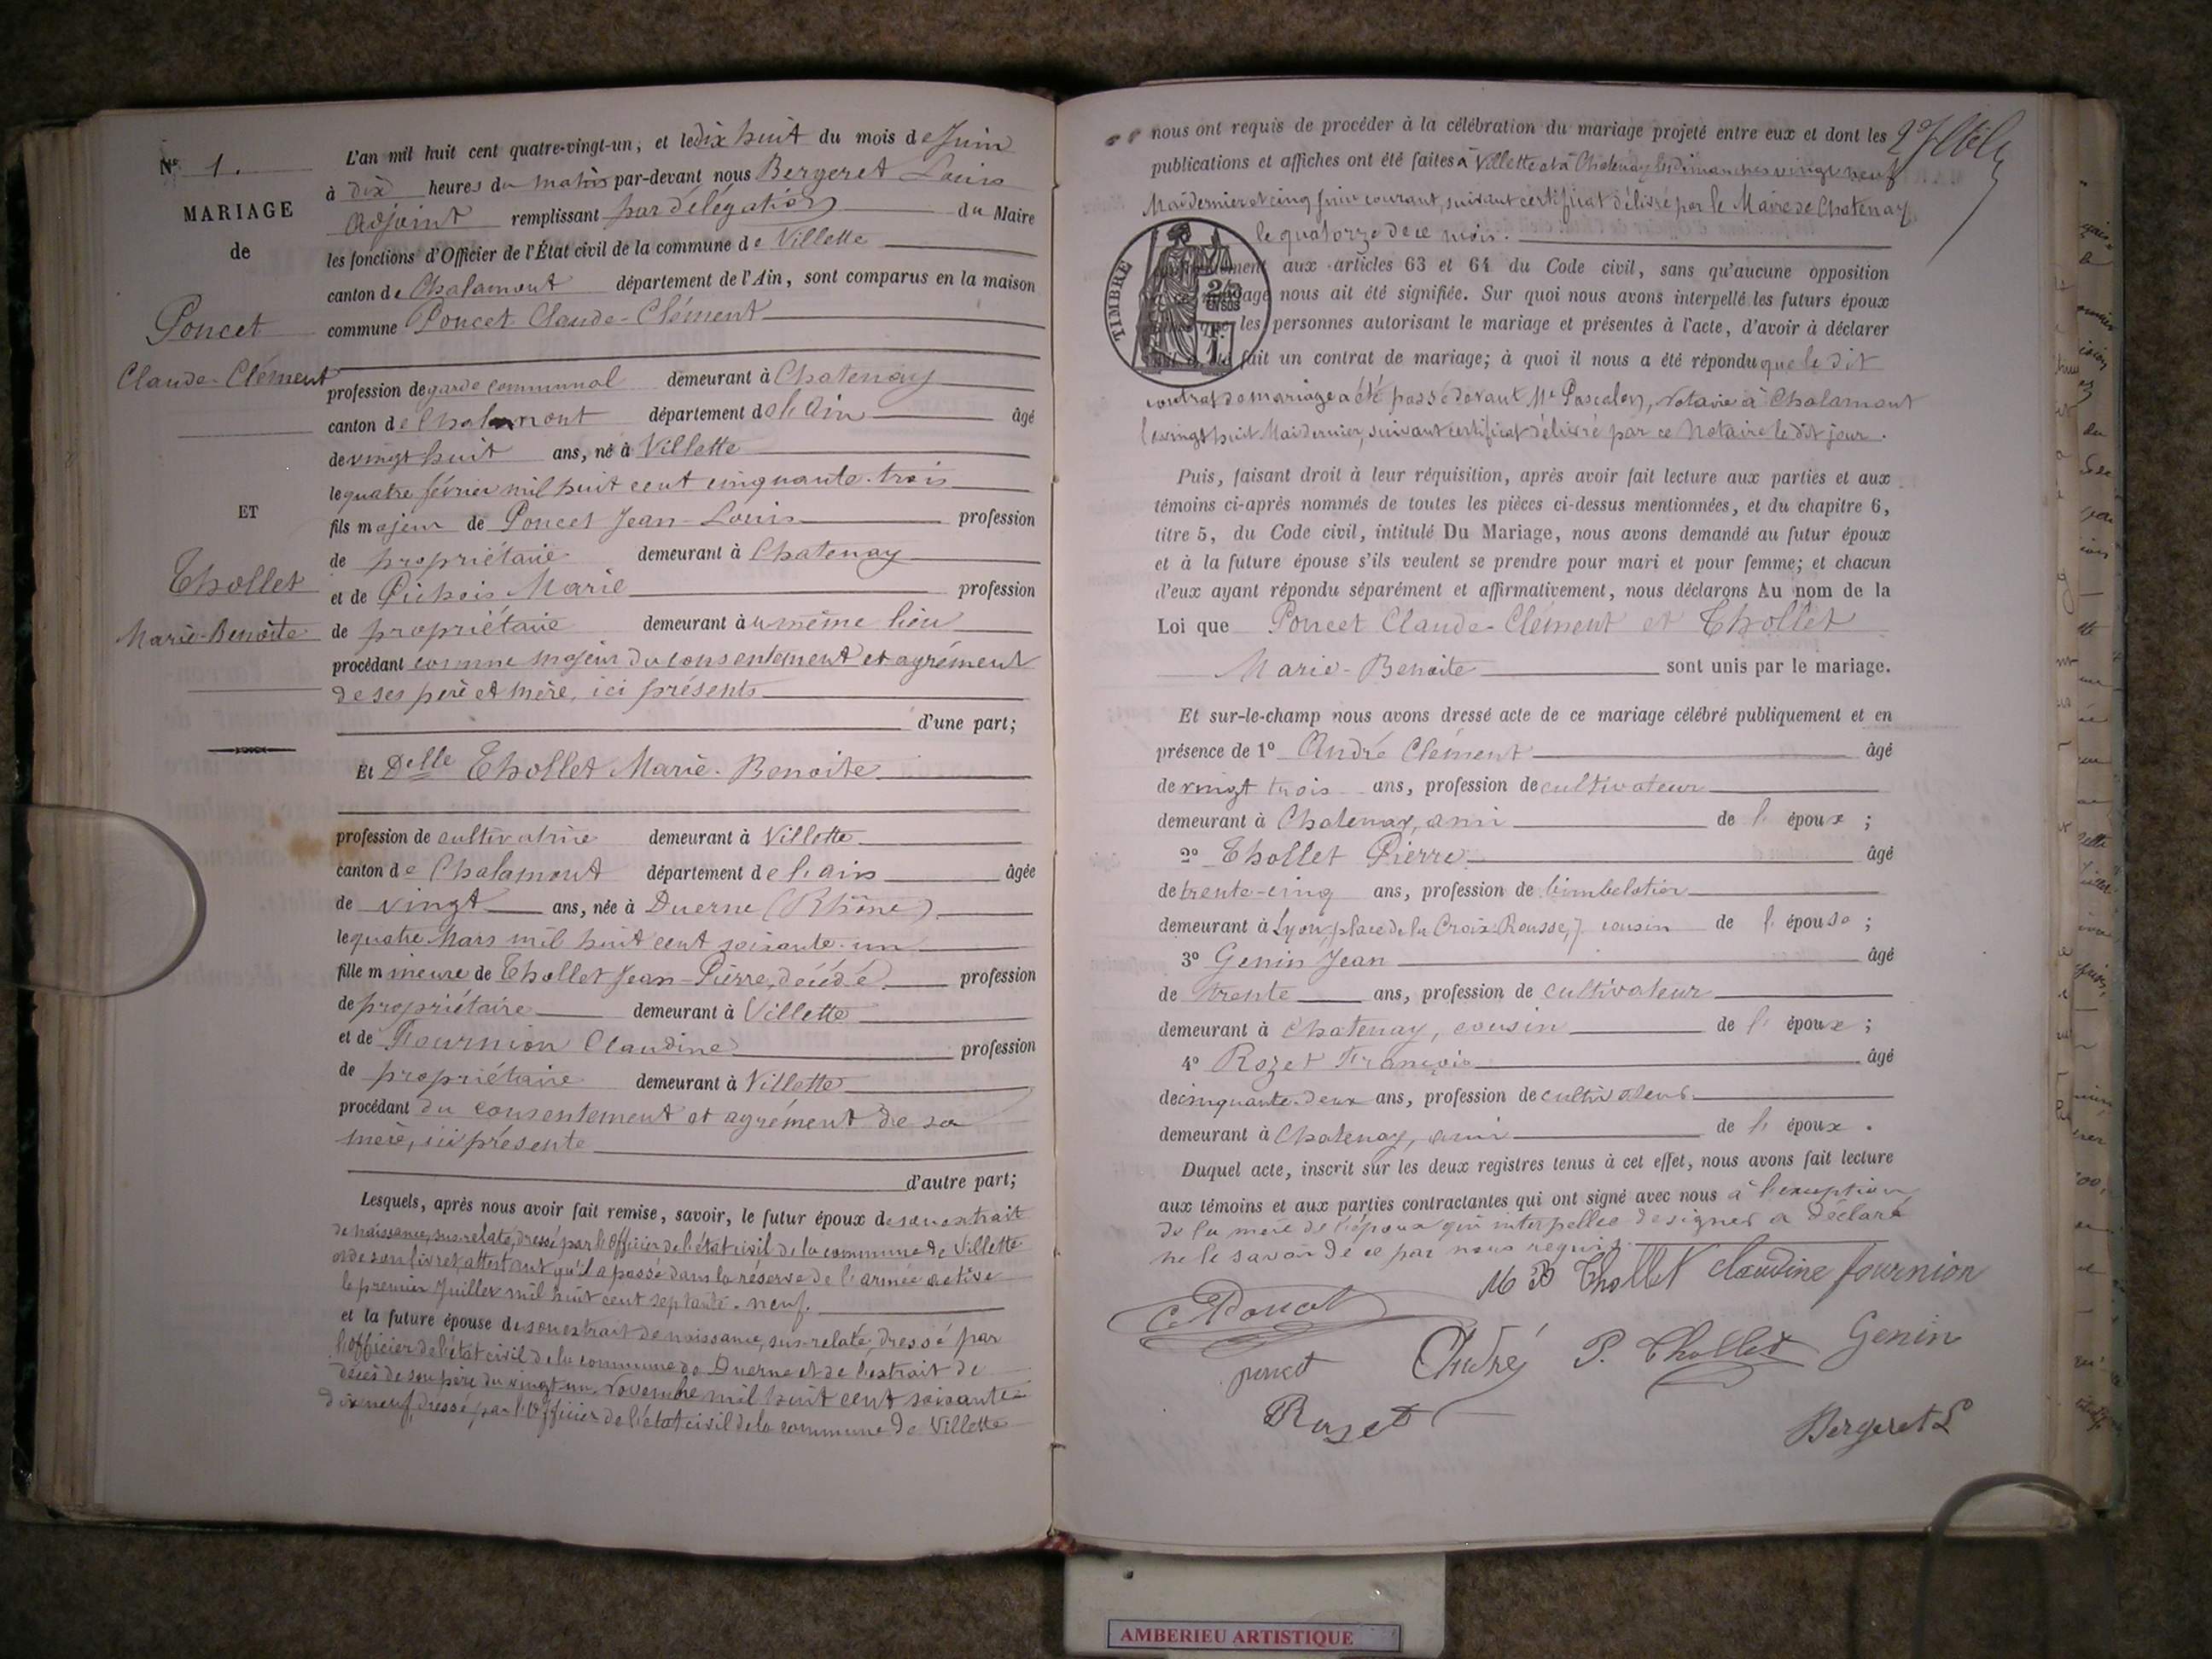 N° 1.
MARIAGE
de
Poncet
Claude-Clément
ET
Thollet
Marie-Benoite
L'an mil huit cent quatre-vingt-un, et le dix huit du mois de Juin
à dix heures du matin par-devant nous Bergeret Louis
Adjoint remplissant par délégation du Maire
les fonctions d'Officier de l'État civil de la commune de Villette
canton de Chalamont département de l'Ain, sont comparus en la maison
commune Poncet Claude-Clément
profession de garde communal demeurant à Chatenay
canton de Chalamont département de l'Ain âgé
de vingt huit ans, né à Villette
le quatre février mil huit cent cinquante-trois
fils majeur de Poncet Jean-Louis profession
de propriétaire demeurant à Chatenay
et de Pichois Marie profession
de propriétaire demeurant au même lieu
procédant comme majeur du consentement et agrément
de ses père et mère, ici présents
d'une part;
Et Delle Thollet Marie-Benoite
profession de cultivatrice demeurant à Villette
canton de Chalamont département de l'ain âgée
de vingt ans, née à Duerne (Rhône)
le quatre Mars mil huit cent soixante-un
fille mineure de Thollet Jean-Pierre, décédé profession
de propriétaire demeurant à Villette
et de Fournion Claudine profession
de propriétaire demeurant à Villette
procédant du consentement et agrément de sa
mère, ici présente
d'autre part;
Lesquels, après nous avoir fait remise, savoir, le futur époux de son extrait
de naissance, sus-relaté, dressé par l'Officier de l'état civil de la commune de Villette
et de son livret, attestant qu'il a passé dans la réserve de l'armée active
le premier Juillet mil huit cent septante-neuf.
et la future épouse de son extrait de naissance, sus-relaté, dressé par
l'officier de l'état civil de la commune de Duerne et de l'extrait de
décès de son père du vingt-un Novembre mil huit cent soixante-
dix neuf, dressé par l'Officier de l'état civil de la commune de Villette
nous ont requis de procéder à la célébration du mariage projeté entre eux et dont les
publications et affiches ont été faites à Villette et à Chatenay les dimanches vingt neuf
Mai dernier et cinq Juin courant, suivant certificat délivré par le Maire de Chatenay
le quatorze de ce mois.
TIMBRE
2/10
EN SUS
1 F.
aux articles 63 et 64 du Code civil, sans qu'aucune opposition
nous ait été signifiée. Sur quoi nous avons interpellé les futurs époux
les personnes autorisant le mariage et présentes à l'acte, d'avoir à déclarer
fait un contrat de mariage; à quoi il nous a été répondu que le dit
contrat de mariage a été passé devant Me Pascalon, Notaire à Chalamont
le vingt huit Mai dernier, suivant certificat délivré par ce Notaire le dit jour.
Puis, faisant droit à leur réquisition, après avoir fait lecture aux parties et aux
témoins ci-après nommés de toutes les pièces ci-dessus mentionnées, et du chapitre 6,
titre 5, du Code civil, intitulé Du Mariage, nous avons demandé au futur époux
et à la future épouse s'ils veulent se prendre pour mari et pour femme; et chacun
d'eux ayant répondu séparément et affirmativement, nous déclarons Au nom de la
Loi que Poncet Claude-Clément et Thollet
Marie-Benoite sont unis par le mariage.
Et sur-le-champ nous avons dressé acte de ce mariage célébré publiquement et en
présence de 1° André Clément âgé
de vingt trois ans, profession de cultivateur
demeurant à Chatenay, ami de l'époux ;
2° Thollet Pierre âgé
de trente-cinq ans, profession de bimbelotier
demeurant à Lyon, place de la Croix-Rousse, 7 cousin de l'épouse ;
3° Genin Jean âgé
de trente ans, profession de cultivateur
demeurant à Chatenay, cousin de l'époux ;
4° Rozet François âgé
de cinquante-deux ans, profession de cultivateur
demeurant à Chatenay, ami de l'époux.
Duquel acte, inscrit sur les deux registres tenus à cet effet, nous avons fait lecture
aux témoins et aux parties contractantes qui ont signé avec nous à l'exception
de la mère de l'époux qui interpellée de signer a déclaré
ne le savoir de ce par nous requis.
M B Thollet Claudine fournion
C Poncet
poncet André P. Thollet Genin
Rozet
Bergeret L
AMBERIEU ARTISTIQUE